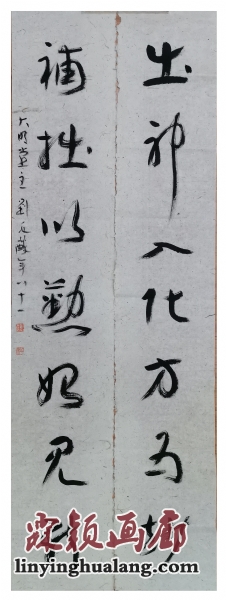 出神入化方为妙
補拙以勤始見
大明堂主劉年八十一
霖颖画廊
linyinghualang.com